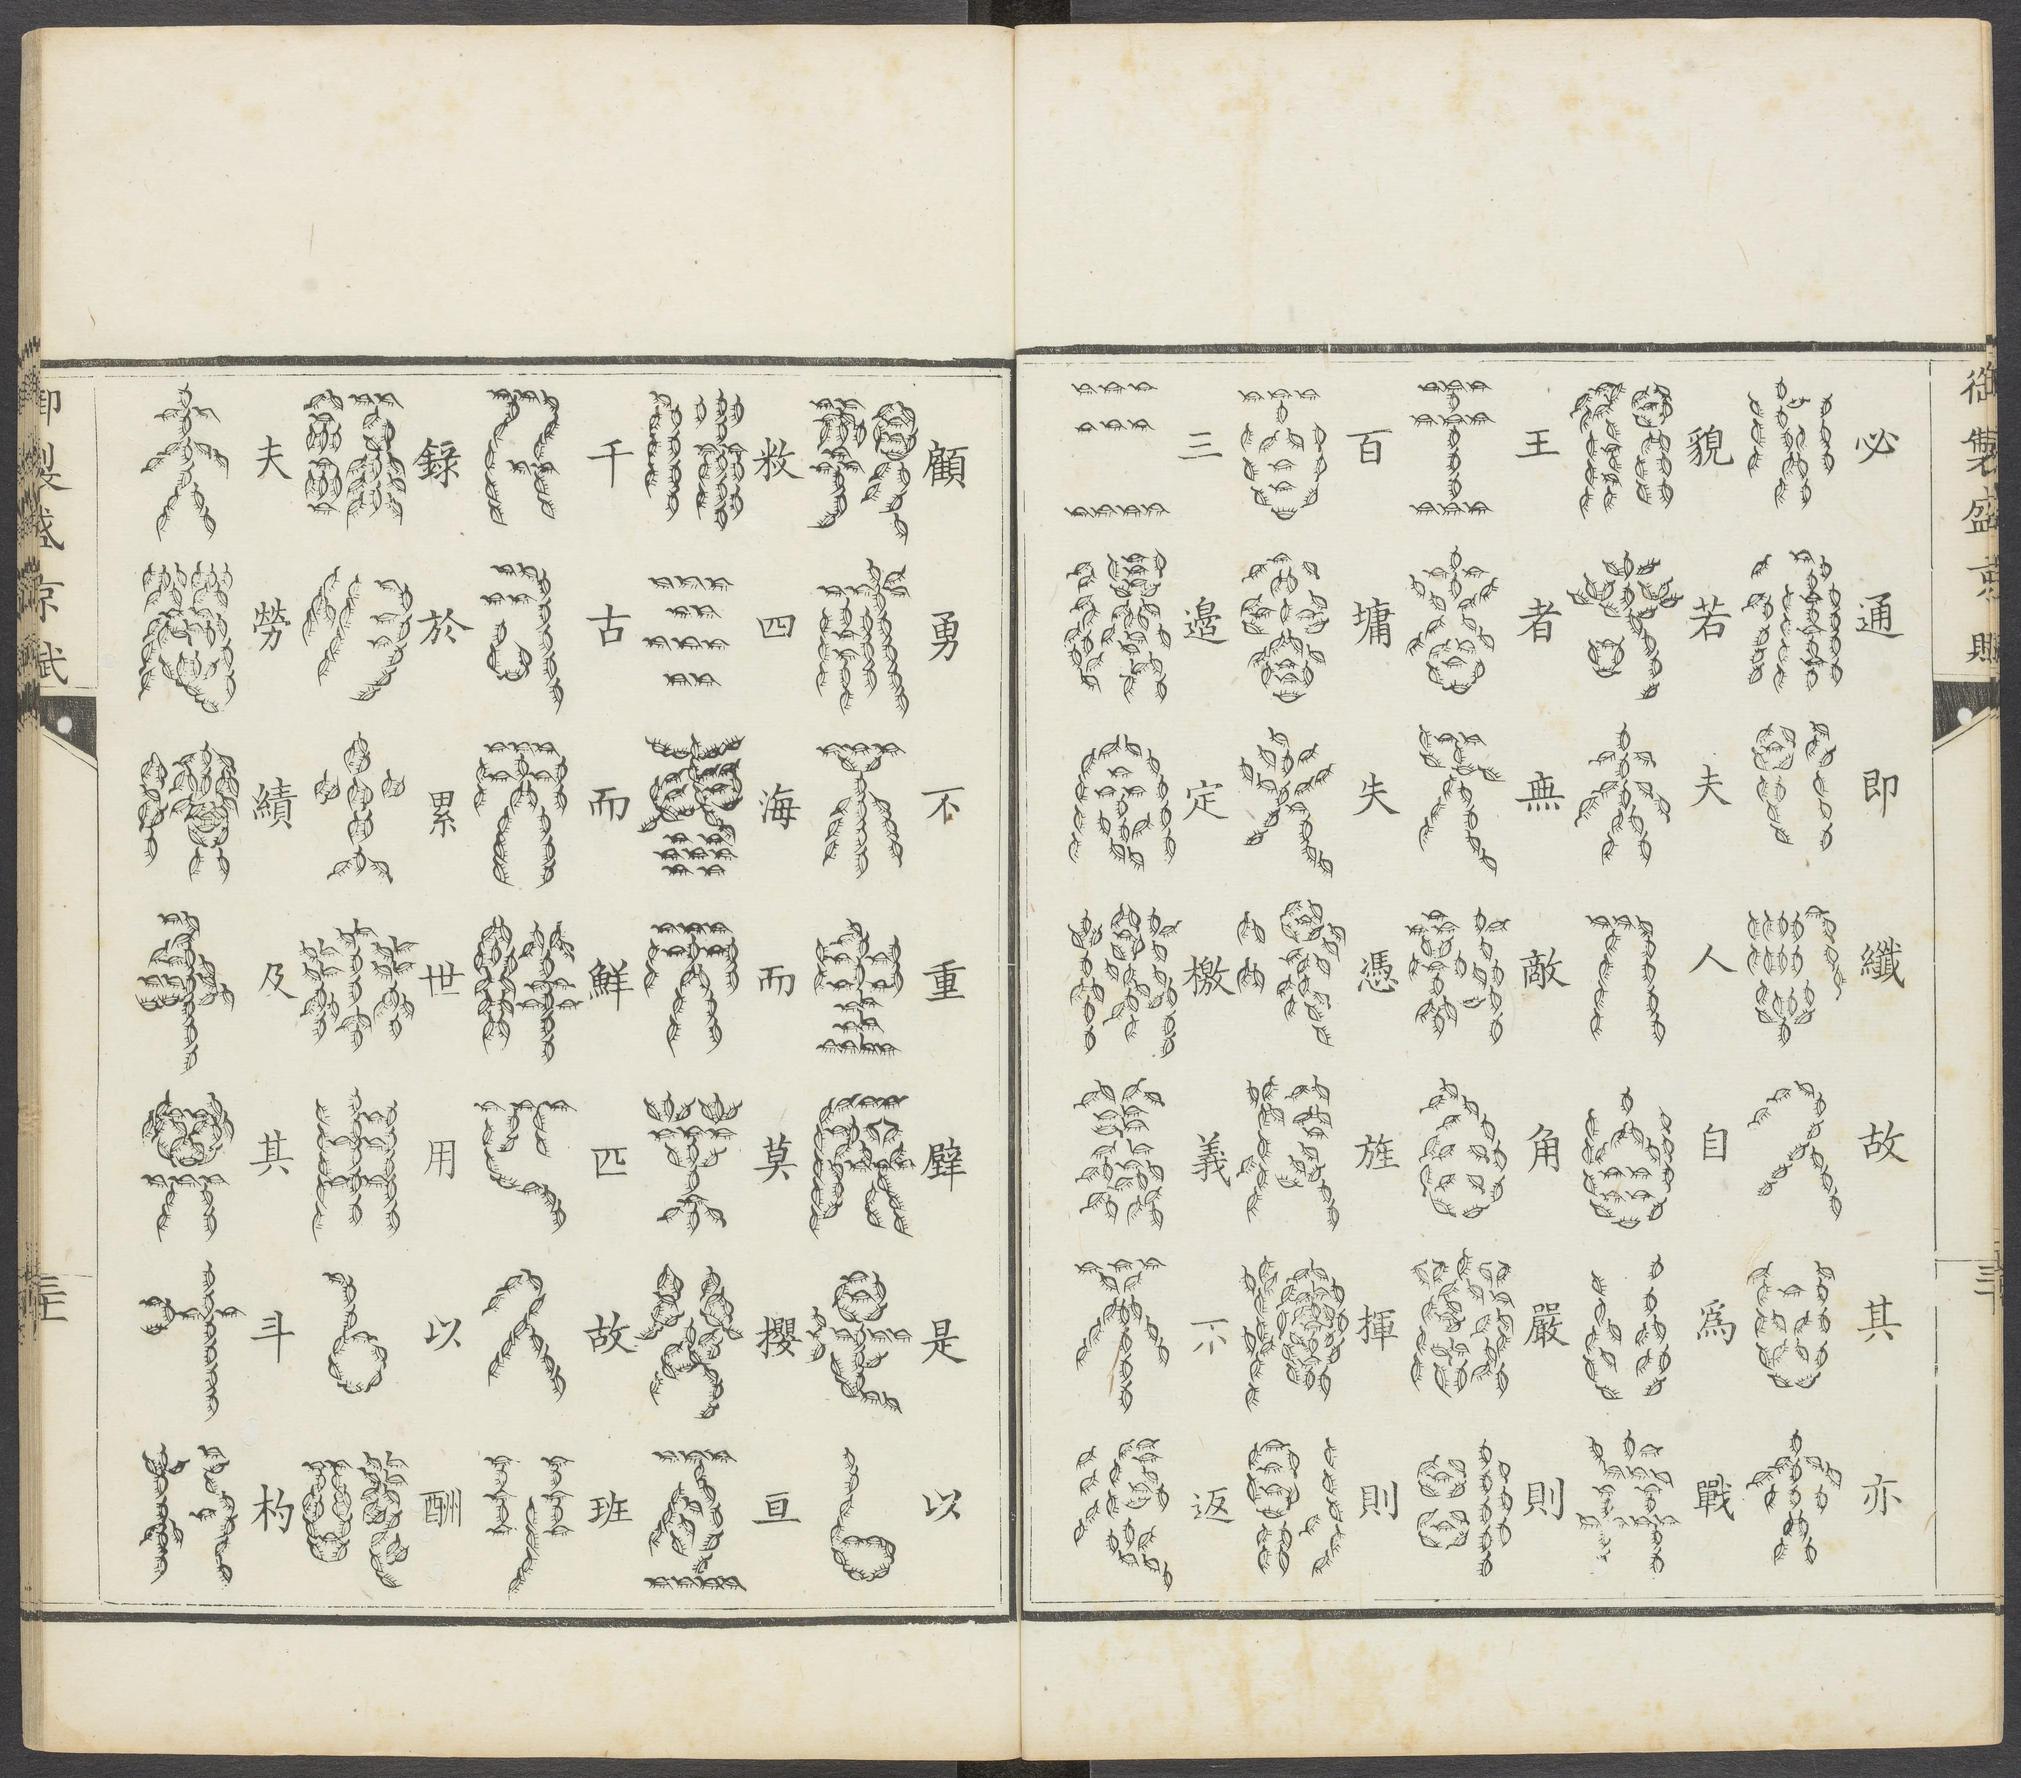 必通即纖故其亦
貌若夫人自爲戰
王者無敵角嚴則
百墉失憑旌揮則
三邊定檄義不返
顧勇不重躄是以
敉四海而莫攖亘
千古而鮮匹故班
錄於累世用以酬
夫勞績及其斗杓
御製盛京賦
三十